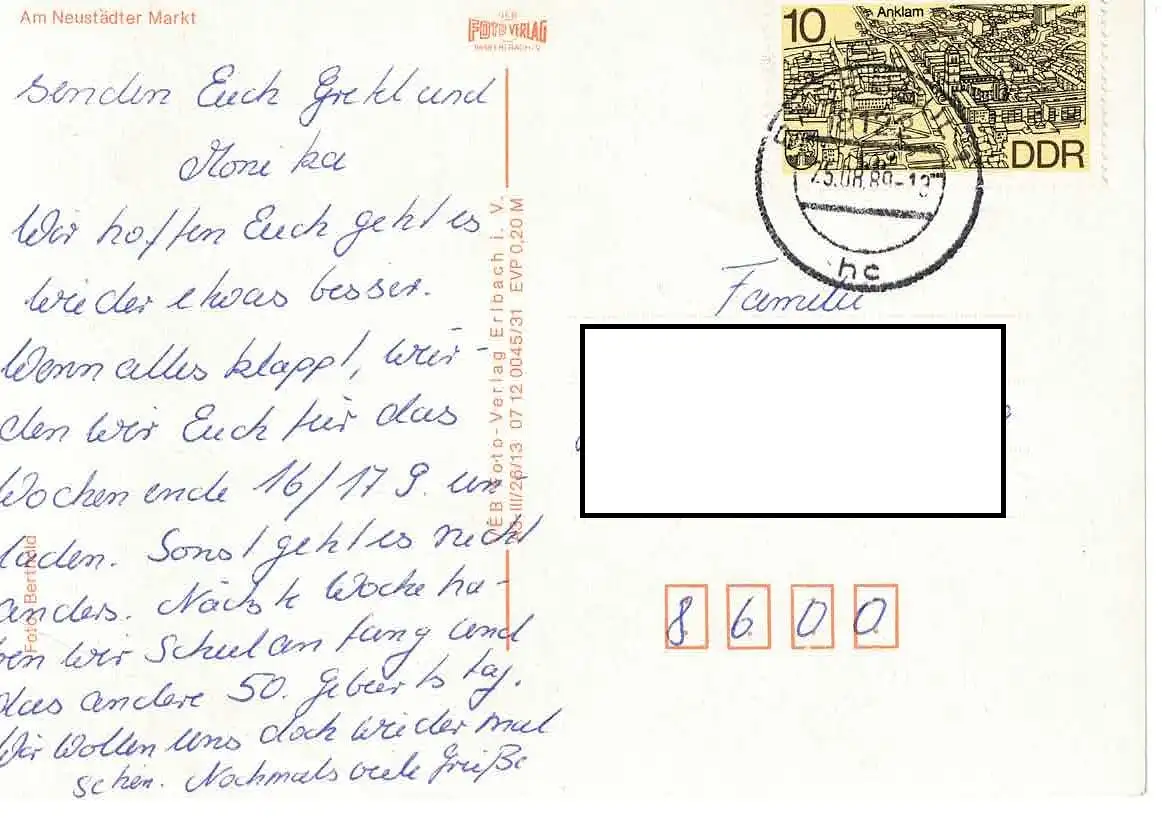 Am Neustädter Markt
senden Euch Gretl und
Monika
Wir hoffen Euch geht es
wieder etwas besser.
Wenn alles klappt, wür-
den wir Euch für das
Wochenende 16/17 9. ein
laden. Sonst geht es nicht
anders. Nächste Woche ha-
ben wir Schulanfang und
das andere 50. Geburtstag.
Wir wollen uns doch wieder mal
sehen. Nochmals viele Grüße
Foto: Berthold
VEB
FOTO VERLAG
VEB Foto-Verlag Erlbach i. V.
07 12 0045/31 EVP 0,20 M
10
Anklam
DDR
hc
Familie
8600